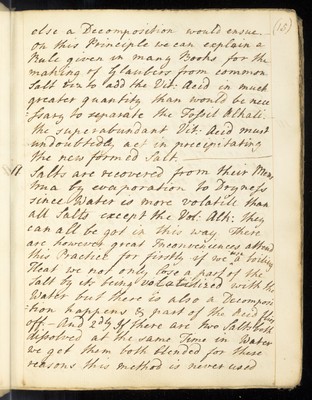 (15)
else a Decomposition would ensue
on this Principle we can explain a
Rule given in many Books for the
making of Glaubers from common
Salt viz to add the Vit: Acid in much
greater quantity than would be nece
ssary to separate the Fossil Alkali,
the superabundant Vit: Acid must
undoubtedly act in precipitating
the new formed Salt.
Salts are recovered from their Mens
trua by evaporation to Dryness
since Water is more volatile than
all Salts except the Vol: Alk: they
can all be got in this way. There
are however great Inconveniences attend
this Practice for firstly if we use a boiling
Heat we not only lose a part of the
Salt by its being volatilized with the
Water but there is also a Decomposi
tion happens & part of the Acid flies
off — And 2dly If there are two Salts both
dissolved at the same Time in Water
we get them both blended for these
reasons this method is never used